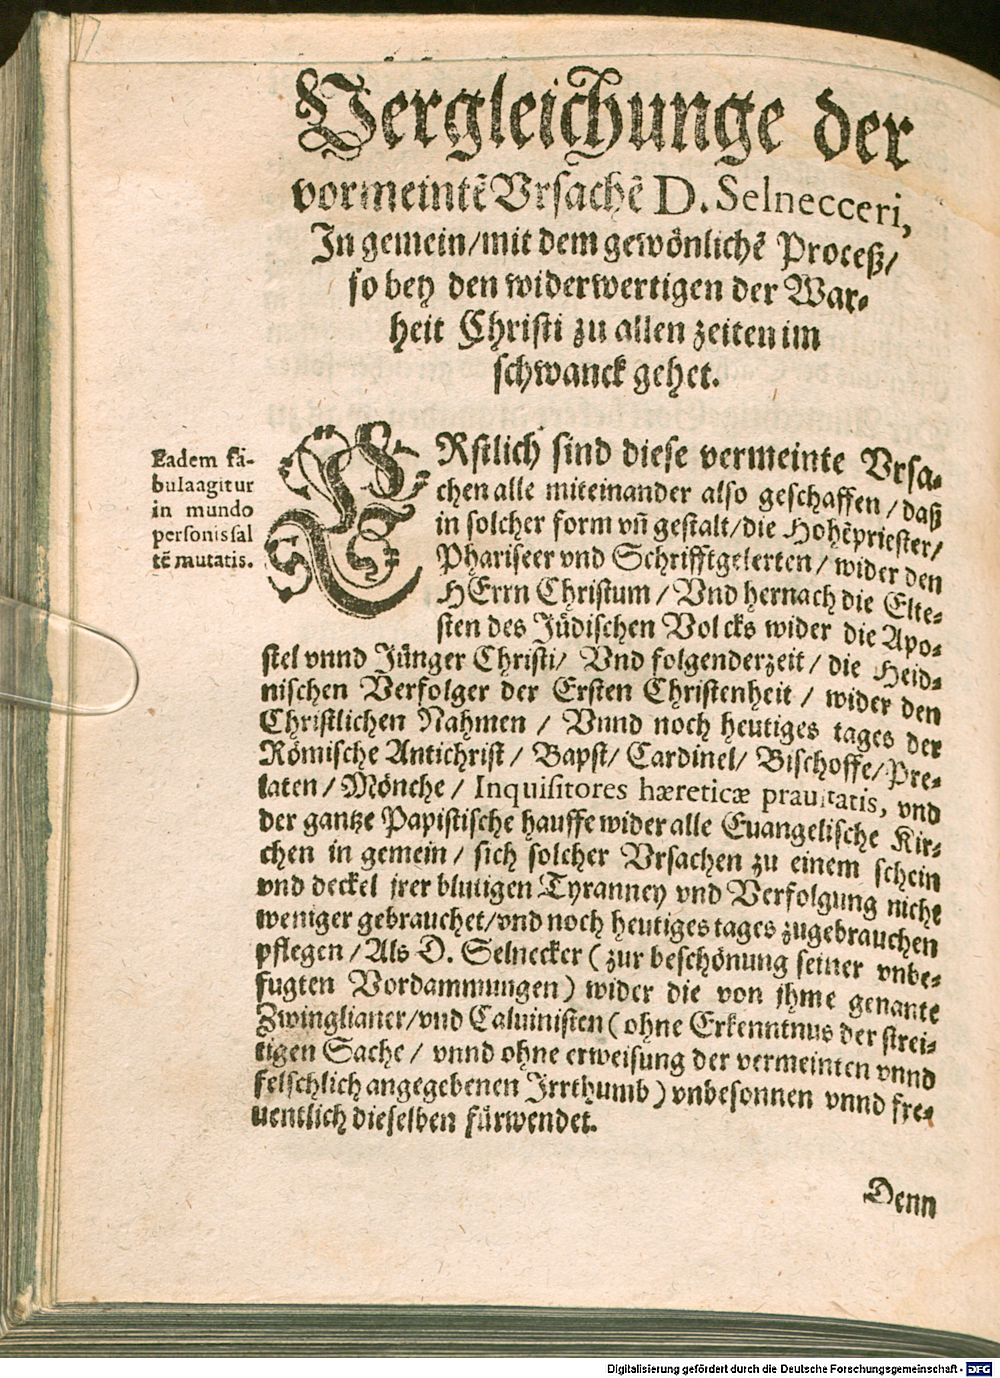 Vergleichunge der
vormeintẽ Vrsachẽ D. Selnecceri,
In gemein/mit dem gewönlichẽ Proceß/
so bey den widerwertigen der War-
heit Christi zu allen zeiten im
schwanck gehet.
Eadem fa-
bula agitur
in mundo
personis sal
tẽ mutatis.
ERstlich sind diese vermeinte Vrsa-
chen alle miteinander also geschaffen / daß
in solcher form vñ gestalt/die Hohẽpriester/
Phariseer vnd Schrifftgelerten / wider den
HErrn Christum / Vnd hernach die Elte-
sten des Jüdischen Volcks wider die Apo-
stel vnnd Jünger Christi/ Vnd folgenderzeit / die Heid-
nischen Verfolger der Ersten Christenheit / wider den
Christlichen Nahmen / Vnnd noch heutiges tages der
Römische Antichrist / Bapst/ Cardinel/ Bischoffe/Pre-
laten / Mönche / Inquisitores hæreticæ prauitatis, vnd
der gantze Papistische hauffe wider alle Euangelische Kir-
chen in gemein / sich solcher Vrsachen zu einem schein
vnd deckel jrer blutigen Tyranney vnd Verfolgung nicht
weniger gebrauchet/vnd noch heutiges tages zugebrauchen
pflegen / Als D. Selnecker ( zur beschönung seiner vnbe-
fugten Vordammungen ) wider die von jhme genante
Zwinglianer/vnd Caluinisten ( ohne Erkenntnus der strei-
tigen Sache / vnnd ohne erweisung der vermeinten vnnd
felschlich angegebenen Jrrthumb ) vnbesonnen vnnd fre-
uentlich dieselben fürwendet.
Denn
Digitalisierung gefördert durch die Deutsche Forschungsgemeinschaft - DFG